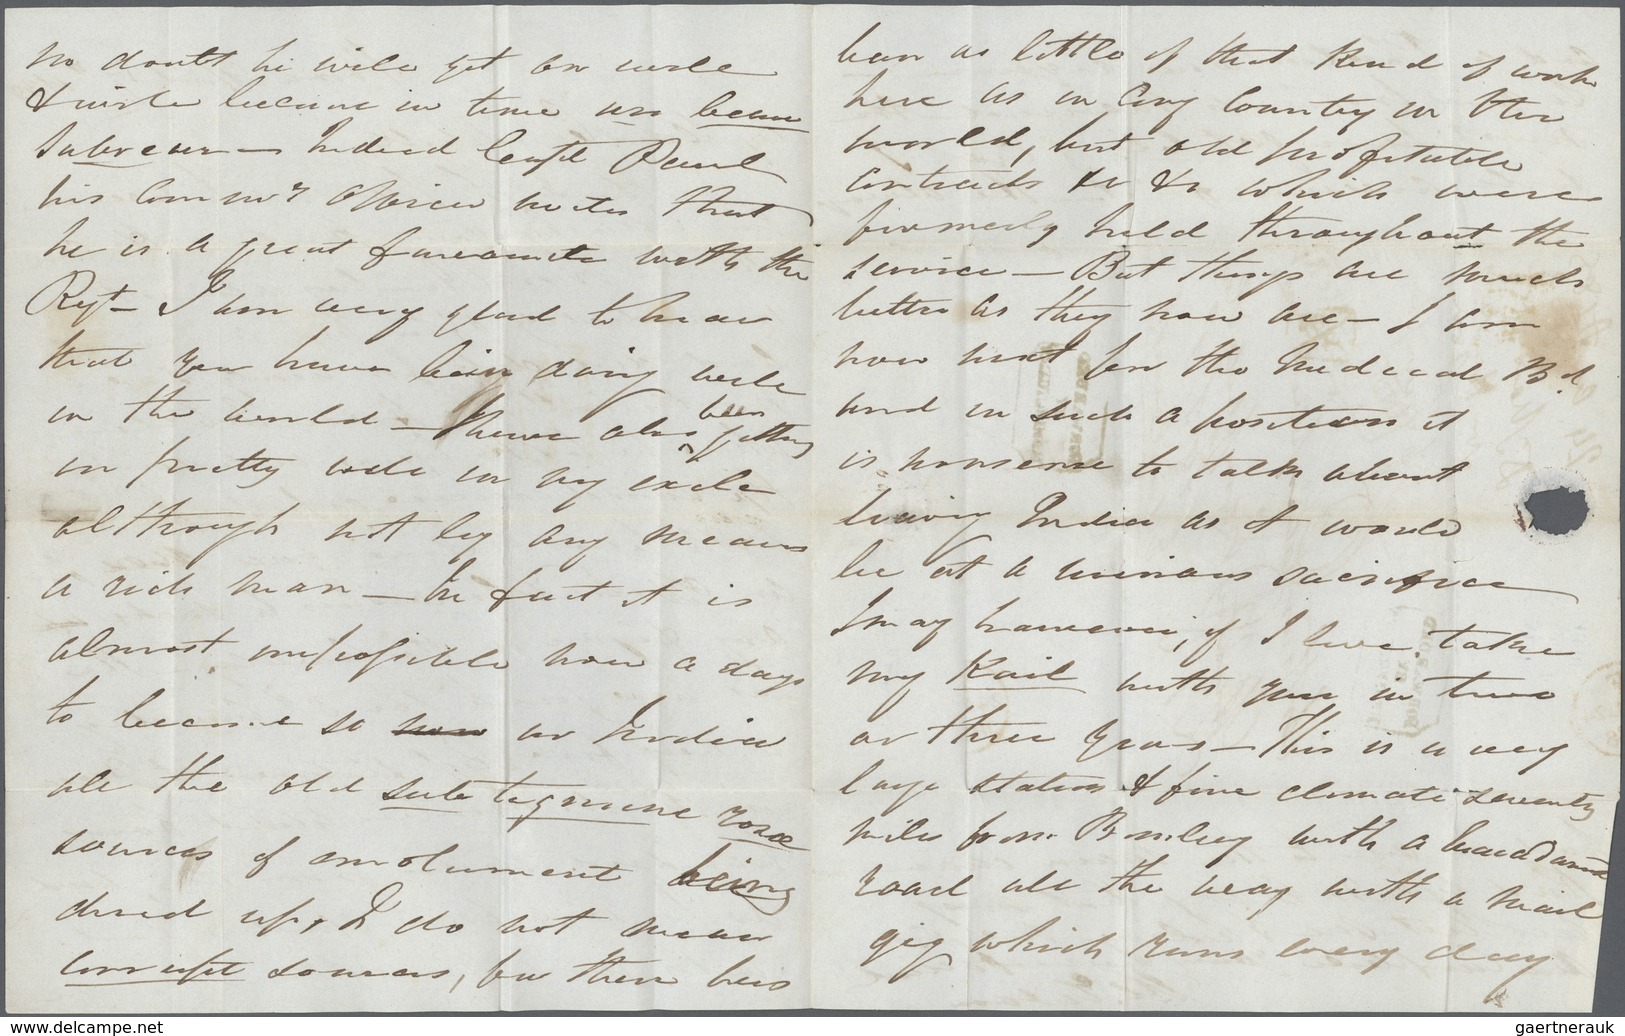 no doubt he will get on well
& become in time un beau
Sabreur — Indeed Capt Paul
his Comm'g Officer writes that
he is a great favourite with the
Regt — I am very glad to hear
that you have been doing well
in the world — I have also been getting
on pretty well in my exile
although not by any means
a rich man — In fact it is
almost impossible now a days
to become so in India
all the old sub tegmine rosae
sources of emolument being
dried up, I do not mean
corrupt sources, for there has
been as little of that kind of work
here as in any Country in the
world, but old profitable
contracts &c &c which were
formerly held throughout the
service — But things are much
better as they now are — I am
now next for the Medical Bd.
and in such a position it
is nonsense to talk about
leaving India as it would
be at a ruinous sacrifice
I may however, if I live, take
my Kail with you in two
or three years — This is a very
large station & fine climate seventy
miles from Bombay with a
road all the way with a mail
gig which runs every day
gaertnerauk
www.delcampe.net